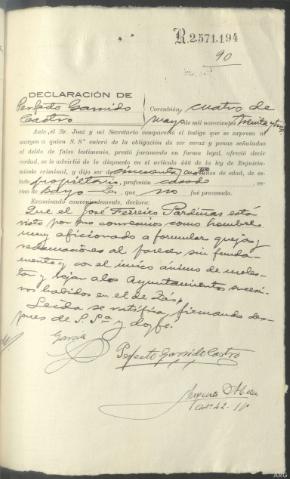 R.2.571.194
90
DECLARACIÓN DE
Perfecto Garrido
Castro
Corcubión, cuatro de
mayo de mil novecientos treinta y
Ante el Sr. Juez y mi Secretario compareció el testigo que se expresa al
margen a quien S. Sª enteró de la obligación de ser veraz y penas señaladas
al delito de falso testimonio, prestó juramento en forma legal, ofrecio decir
verdad, se le advirtió de lo dispuesto en el artículo 446 de la ley de Enjuicia-
miento criminal, y dijo ser de cincuenta años de edad, de es-
propietario, profesión vecino
de que no fué procesado.
Examinado convenientemente, declara:
Que el José Ferreiro Pardiñas está
visto por sus convecinos como hombre
muy aficionado a formular quejas y
reclamaciones al parecer sin funda-
mento y con el único animo de moles-
tar a los Ayuntamientos
habidos en el de
Leida se ratifica firmando des-
pues de S. Sª y doy fe.
Perfecto Garrido Castro